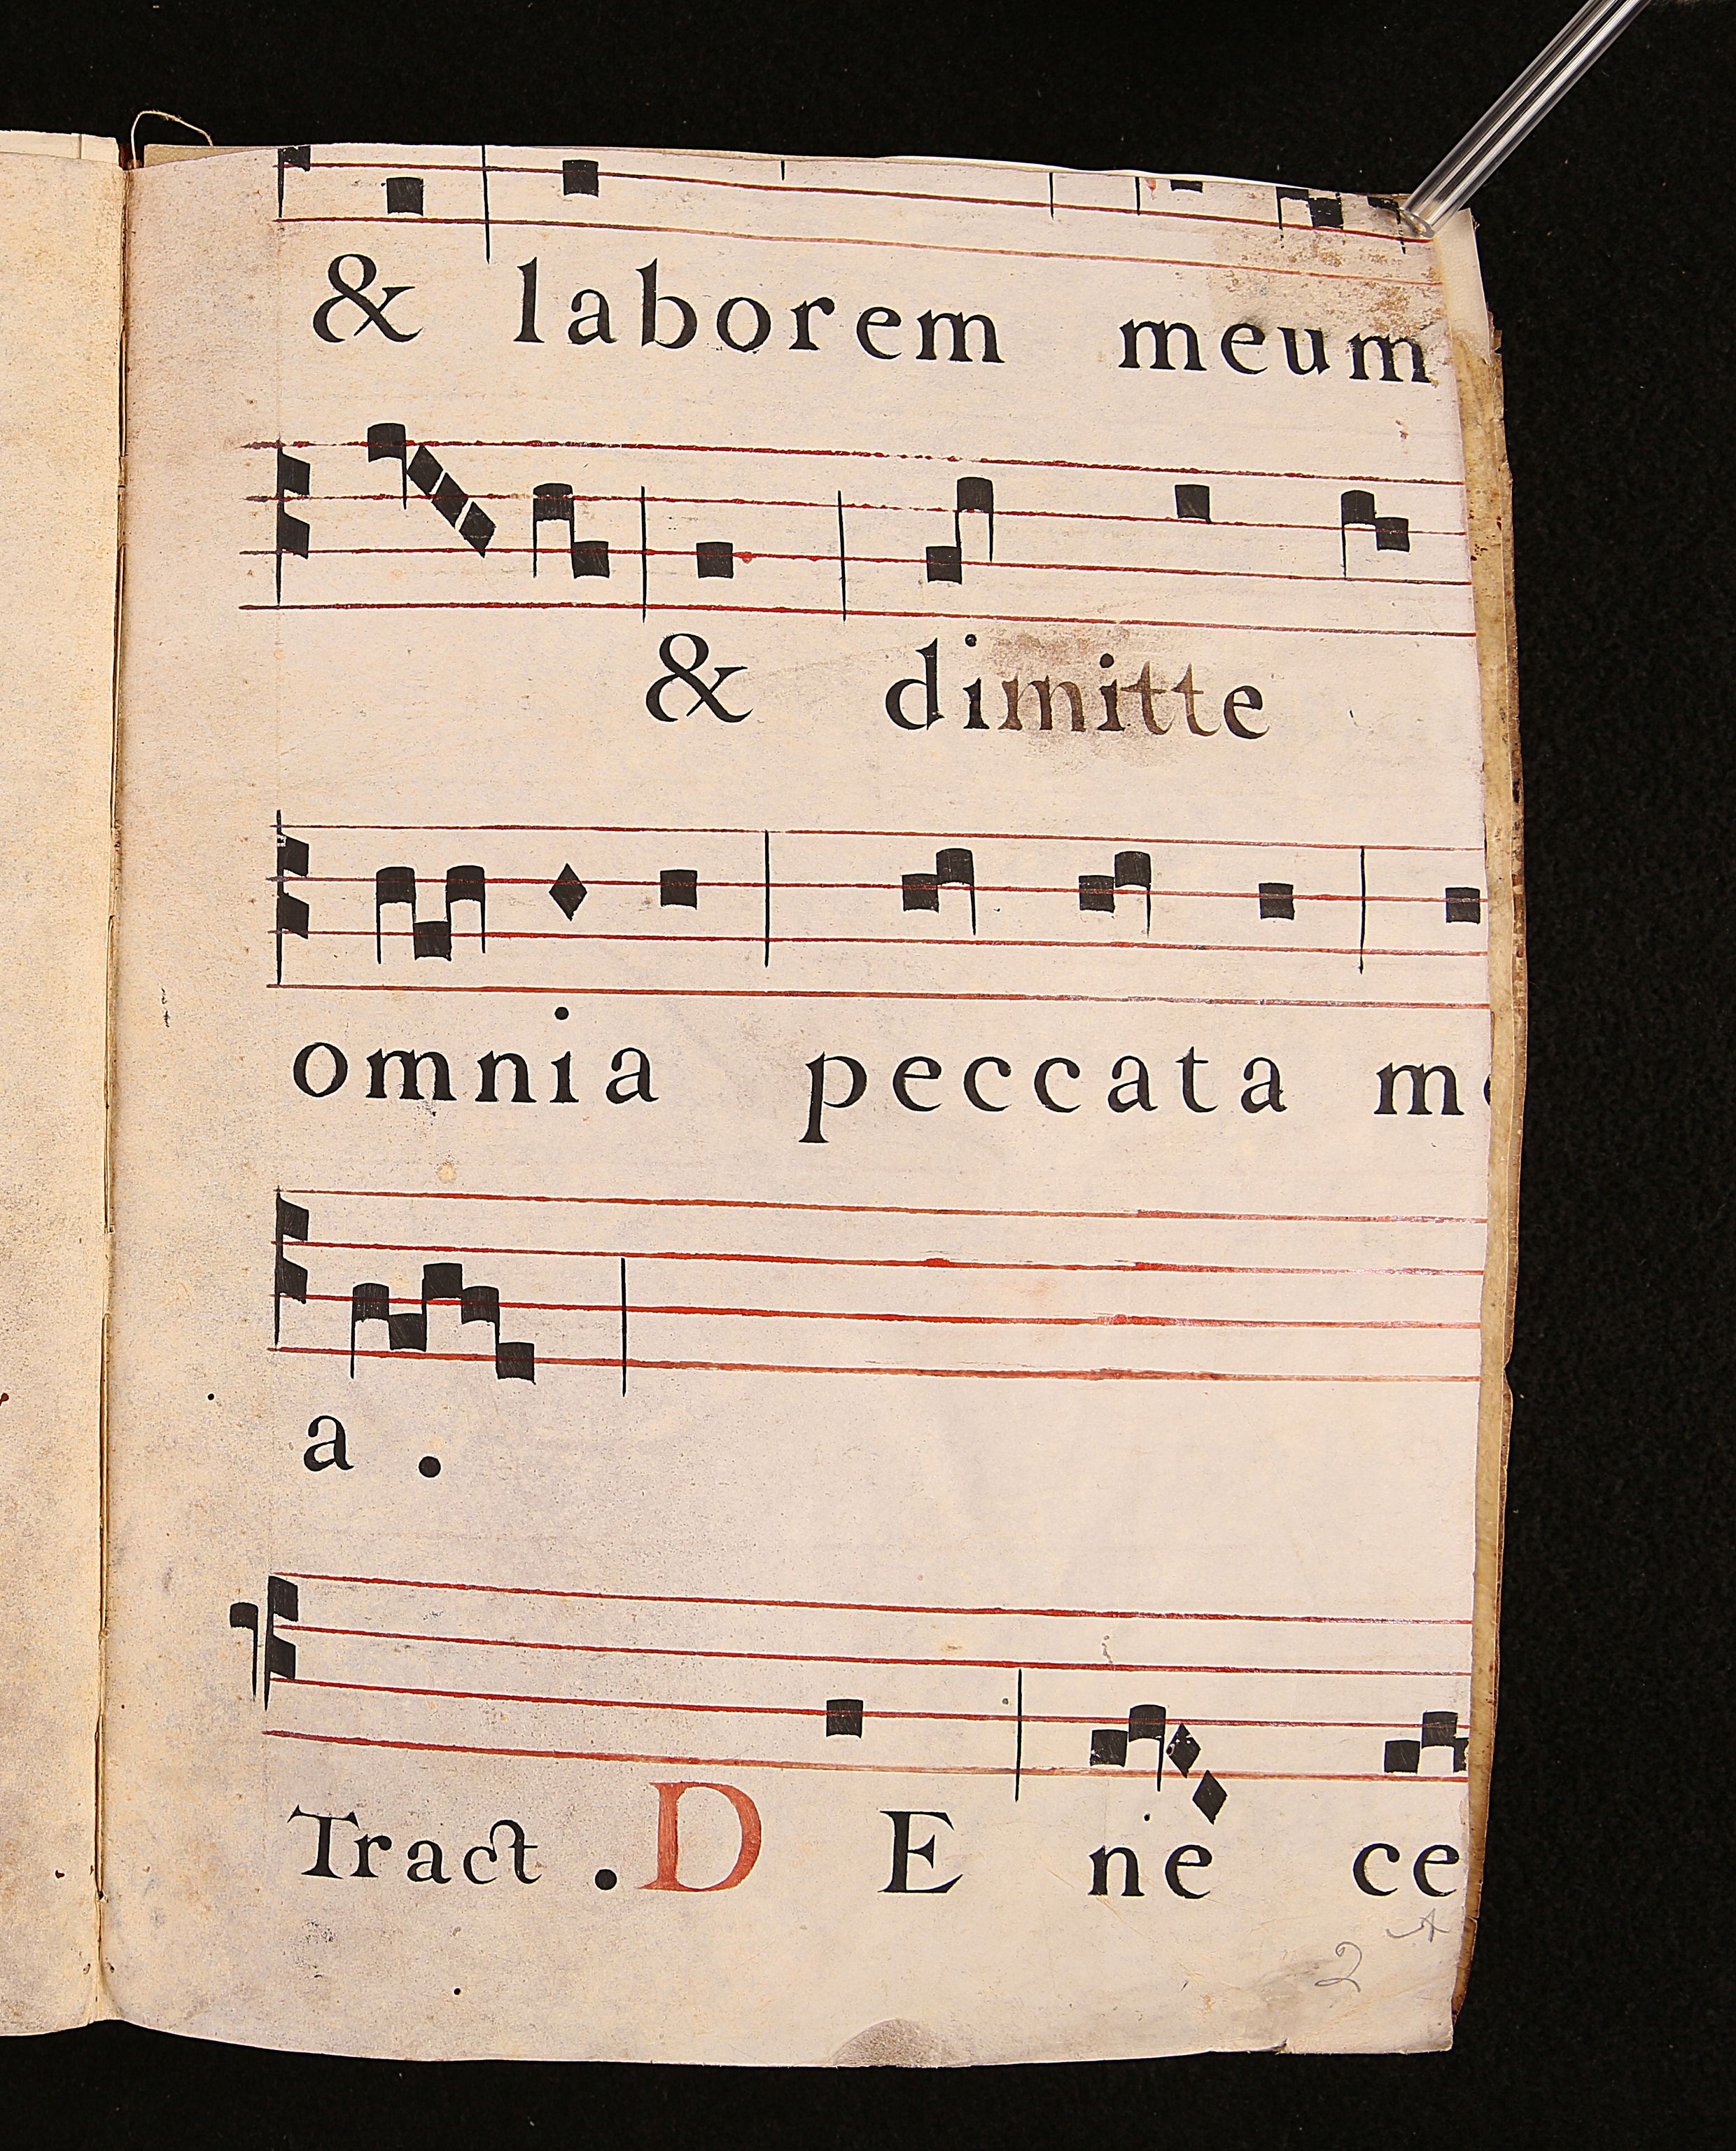 & laborem meum
& dimitte
omnia peccata me
a .
Tract . D E ne ce
A
2